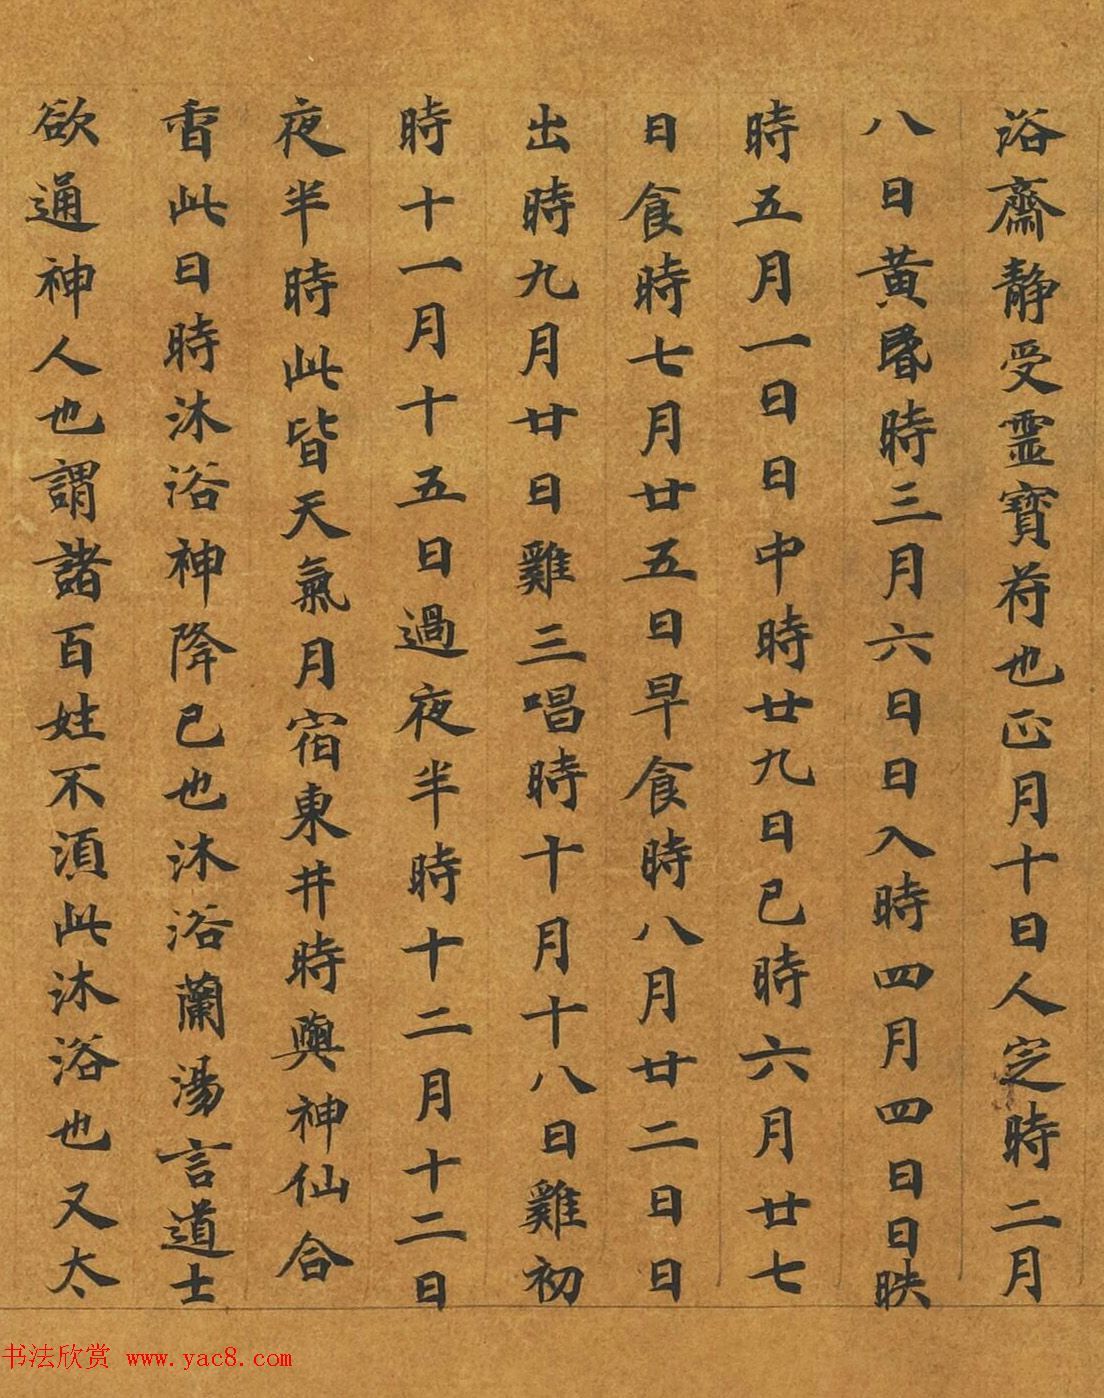 浴齋静受靈寶符也正月十日人定時二月
八日黄昬時三月六日日入時四月四日日昳
時五月一日日中時廿九日巳時六月廿七
日食時七月廿五日早食時八月廿二日日
出時九月廿日雞三唱時十月十八日雞初
時十一月十五日過夜半時十二月十二日
夜半時此皆天氣月宿東井時與神仙合
香此日時沐浴神降已也沐浴蘭湯言道士
欲通神人也謂諸百姓不須此沐浴也又太
书法欣赏 www.yac8.com